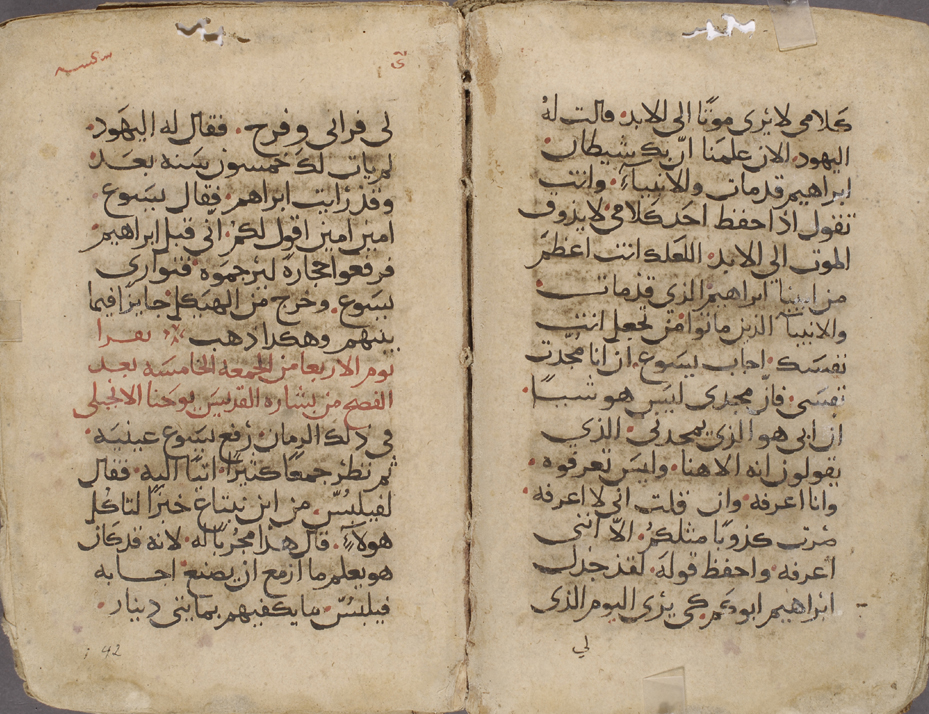 كلامي لا يرى موتًا الى الابد. قالت له
اليهود. الان علمنا انّ بك شيطان.
ابراهيم قد مات. والانبياء. وانت
تقول اذا حفظ احد كلامي لا يذوق
الموت الي الابد. اللعلك انت اعظم
من ابينا ابراهيم الذي قد مات.
والانبيآ الذين ماتوا من تجعل انت
نفسك. اجاب يسوع. ان انا مجّدت
نفسي. فانّ مجدي ليس هو شيئًا.
ان ابي هو الذي يمجدني. الذي
يقولون انه الاهنا. وليس تعرفوه.
وانا اعرفه. وان قلت اني لا اعرفه.
صرت كذوبًا مثلكم. الّا انني
اعرفه. واحفظ قوله. لقد جذل
ابراهيم ابوكم. كي يرى اليوم الذي
لي
لي فراني وفرح. فقال له اليهود.
لم يات لك خمسون سنه بعد.
وقد رايت ابراهم. فقال يسوع.
امين امين اقول لكم. انّي قبل ابراهيم.
فرفعوا حجارة ليرجموه. فتوارى
يسوع. وخرج من الهيكل جايزًا فيما
بينهم وهكذا ذهب يقرا
يوم الاربعا من الجمعه الخامسه بعد
الفصح من بشاره القديس يوحنا الانجلي
في ذلك الزمان رفع يسوع عينيه.
ثم نظر جمعًا كثيرًا اتيًا اليه. فقال
لفيلبسّ. من اين نبتاع خبزًا لتاكل
هولاء. قال هذا مجربًا له. لانه قد كان
هو يعلم ما ازمع ان يصنع. اجابه
فيلبسّ. ما يكفيهم بمايتي دينار.
42